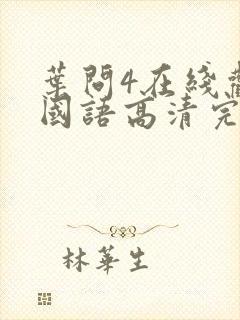 葉問4在綫
國語高清完
林華生